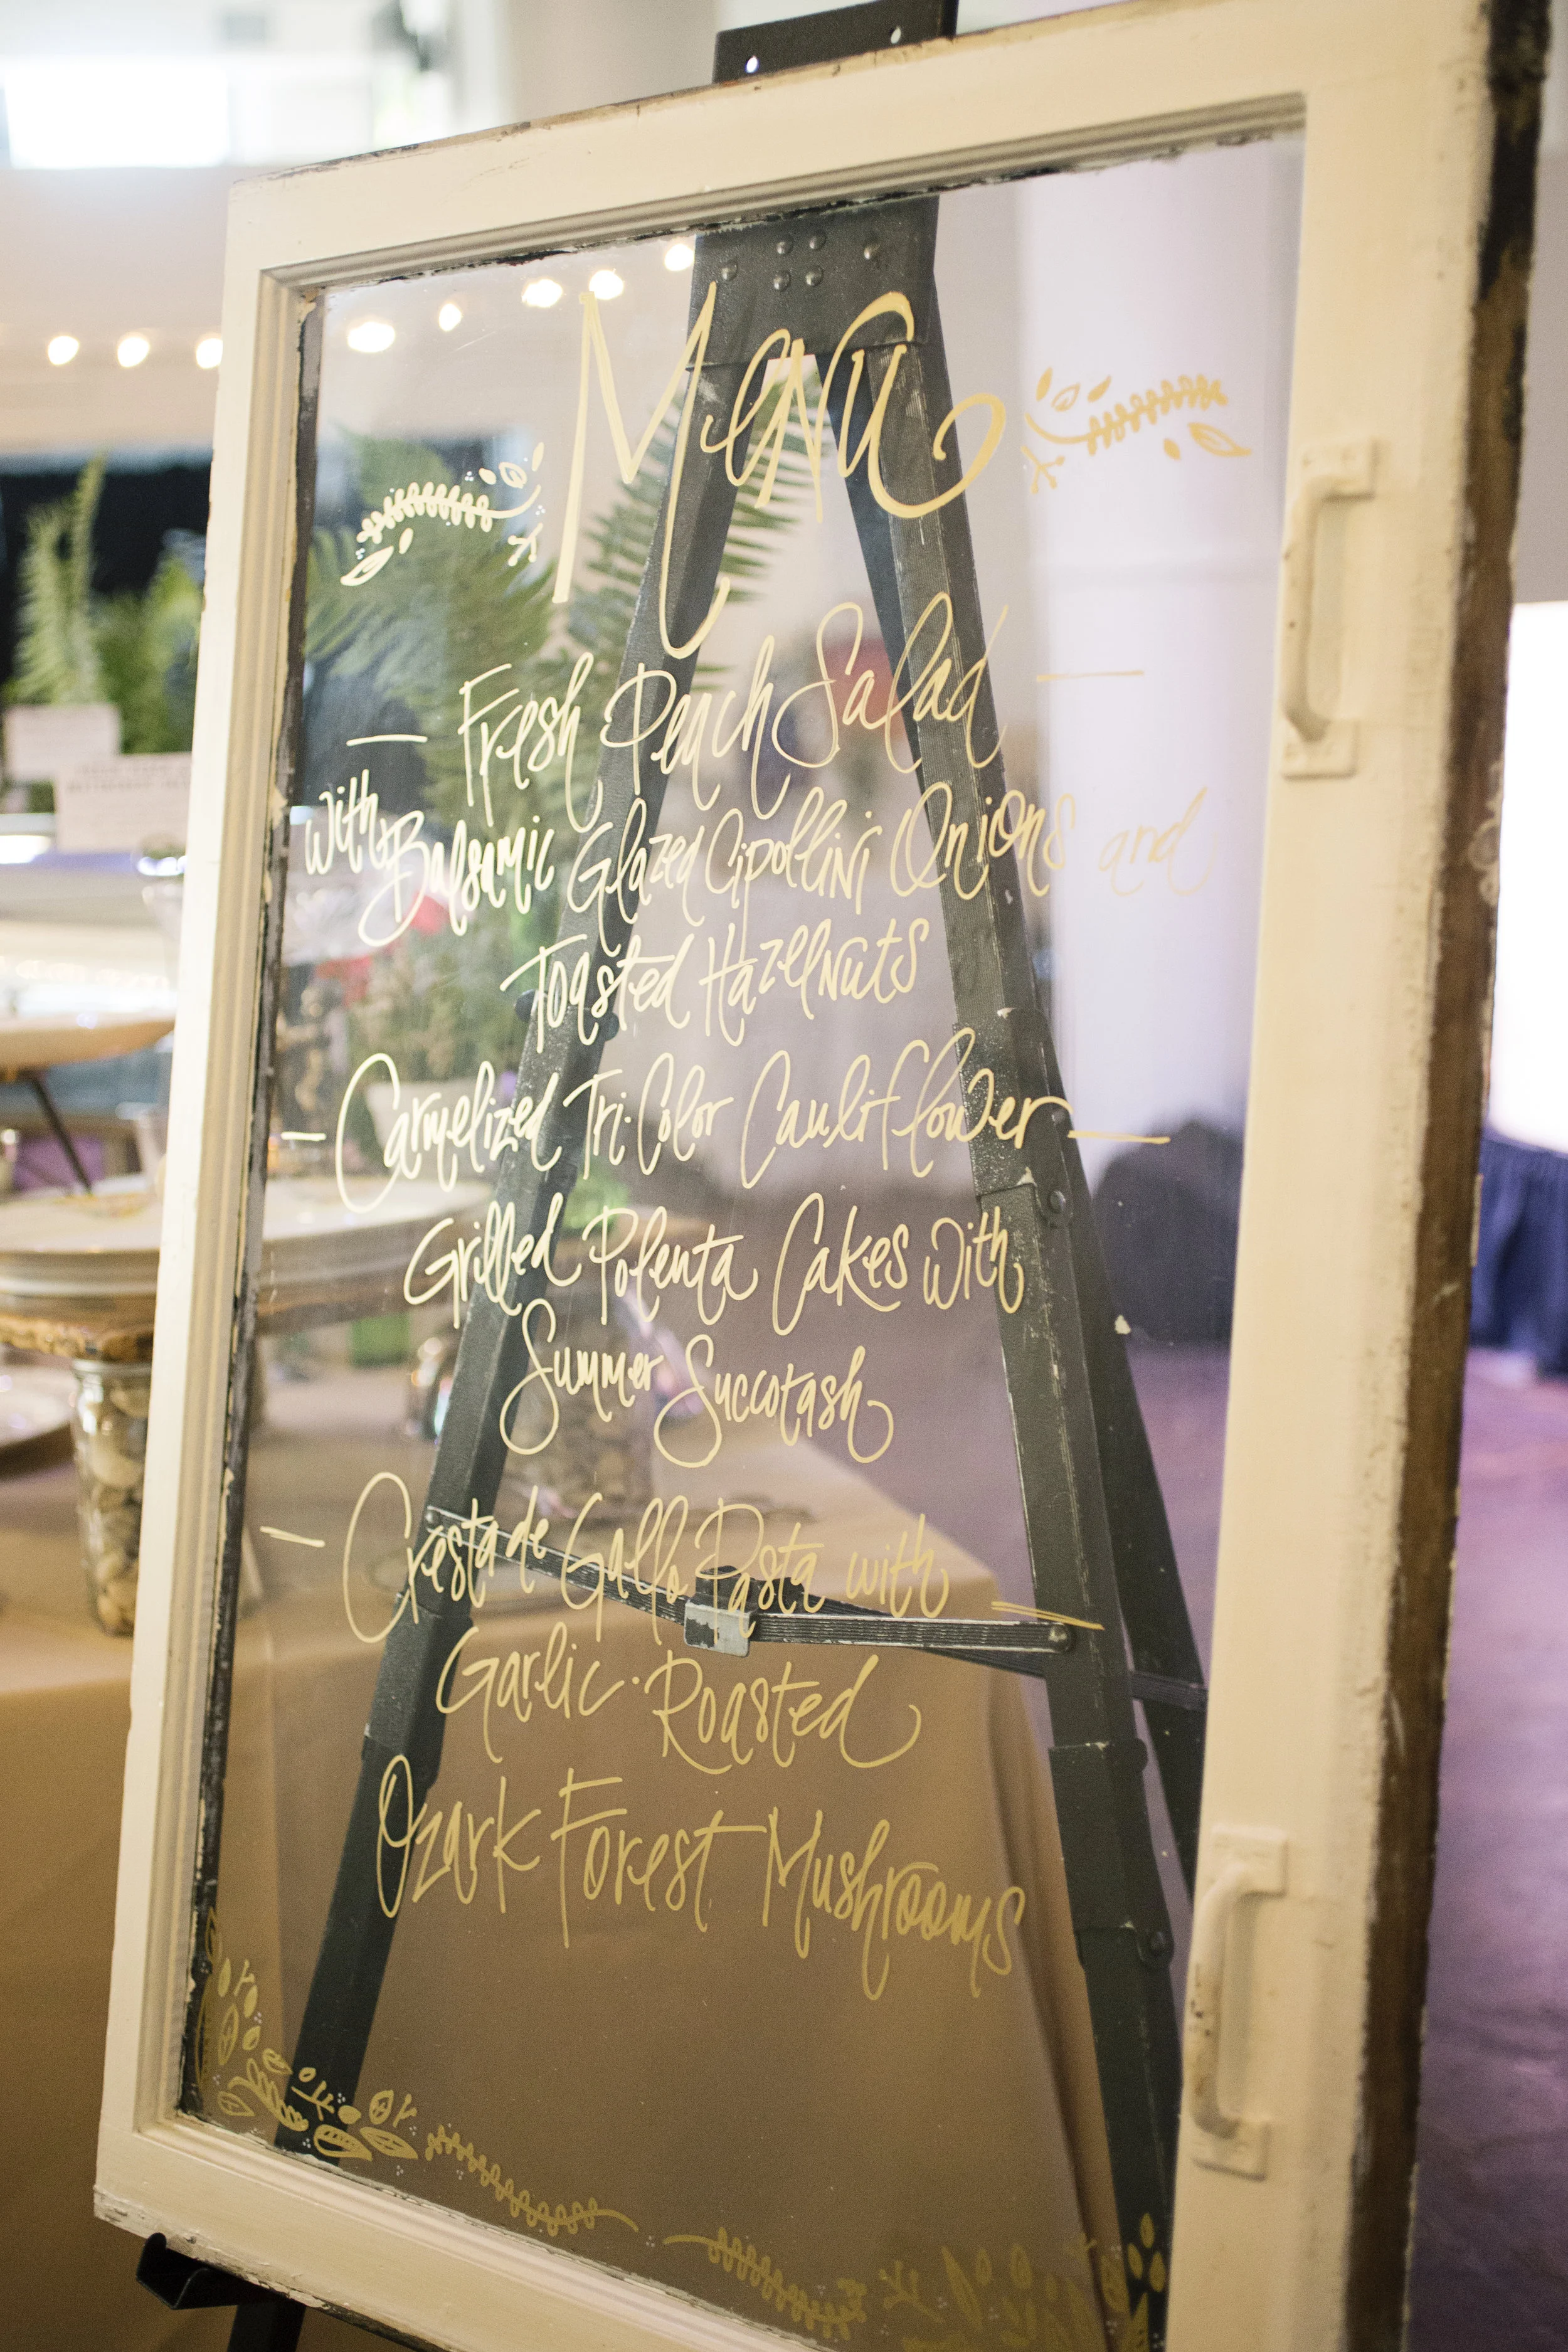 Menu
— Fresh Peach Salad —
with Balsamic Glazed Cipollini Onions and
Toasted Hazelnuts
— Carmelized Tri·Color Cauliflower —
Grilled Polenta Cakes with
Summer Succotash
— Cresta de Gallo Pasta with —
Garlic·Roasted
Ozark Forest Mushrooms